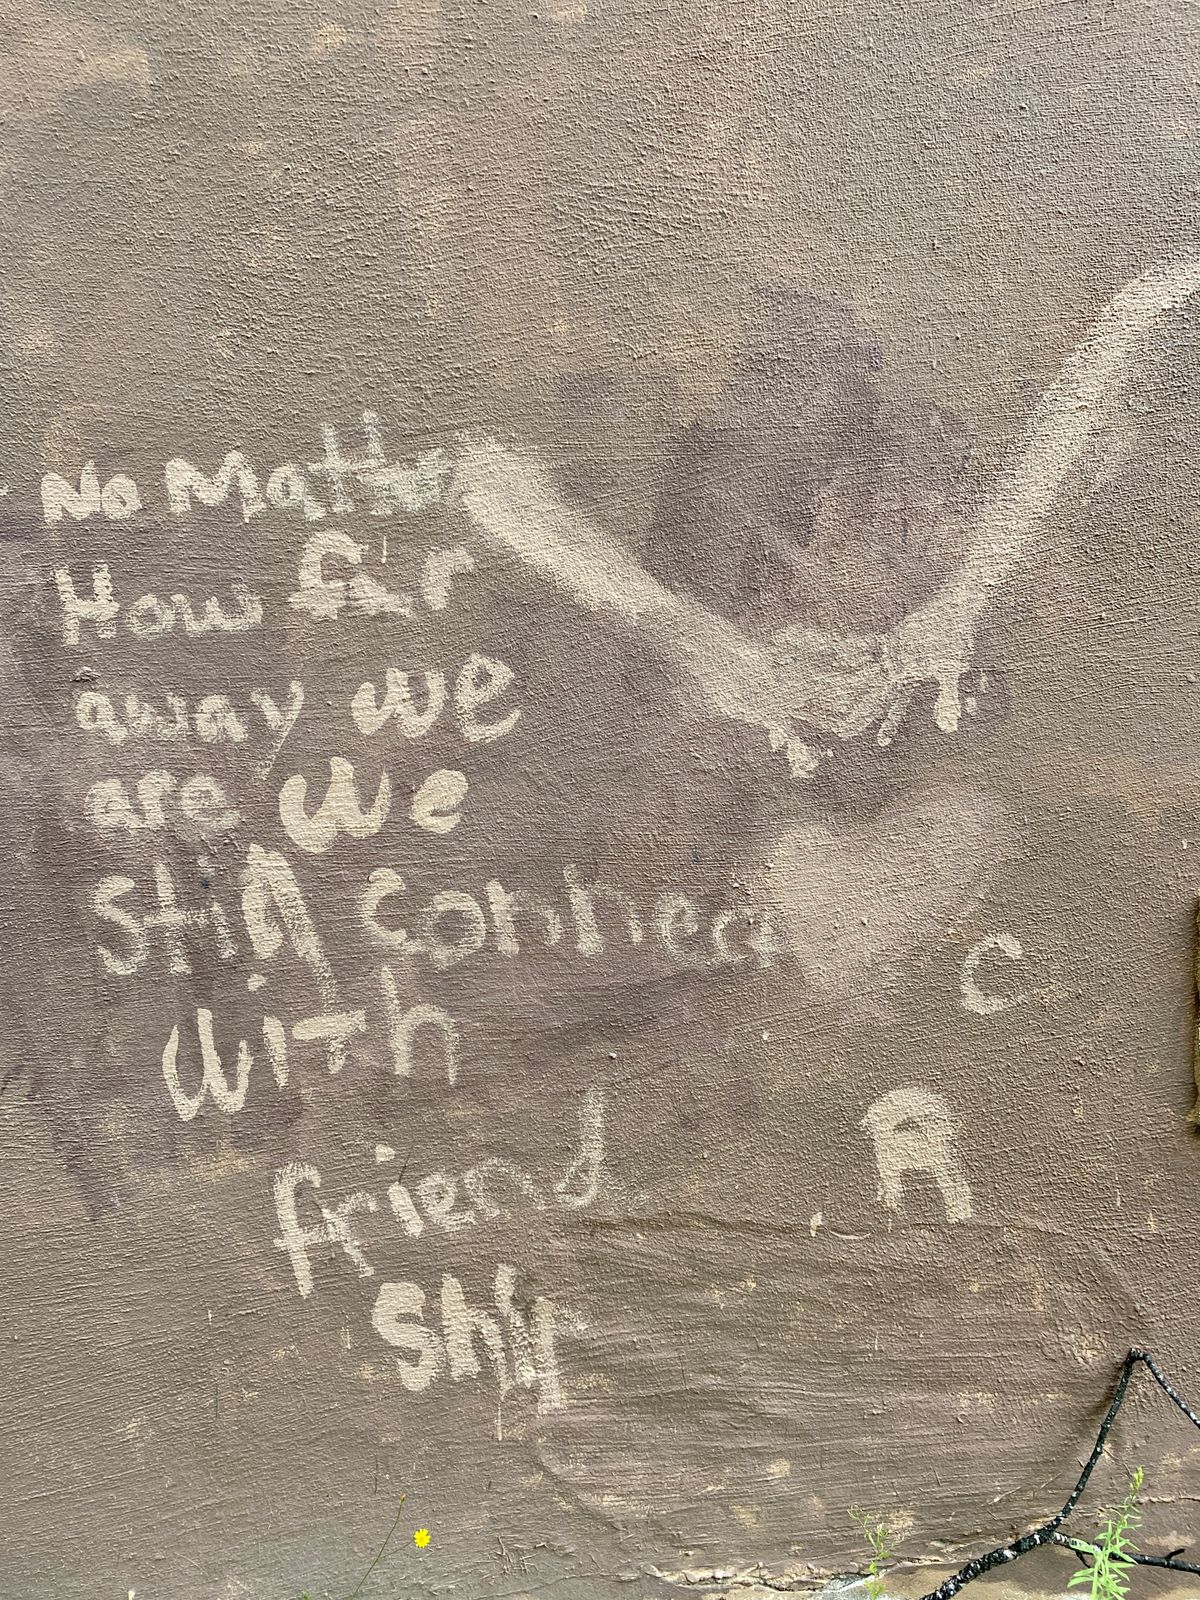 No Matter
How far
away we
are we
still connect
with
friend
Ship
C
A